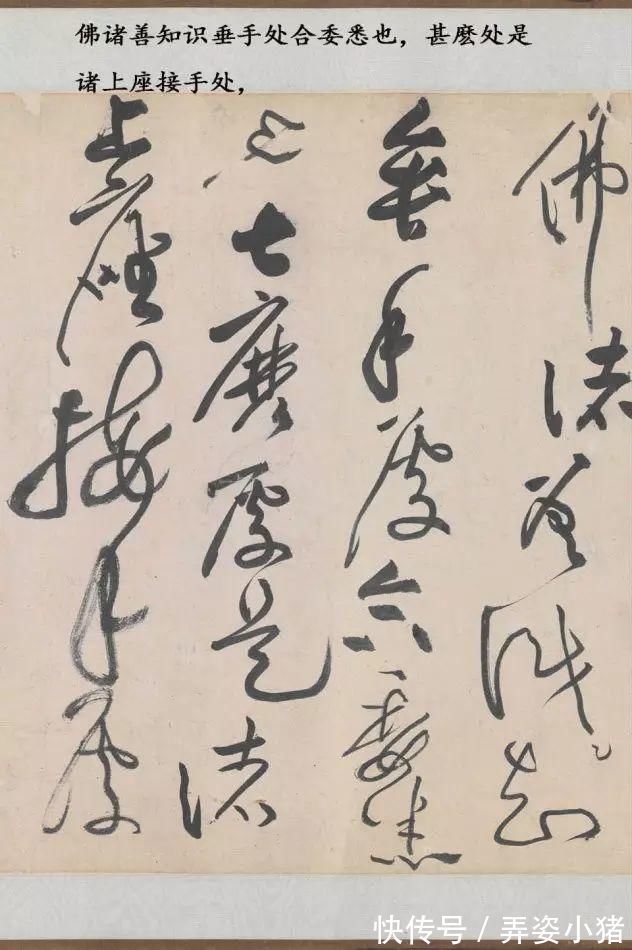 佛诸善知识垂手处合委悉也，甚麽处是
诸上座接手处，
佛諸善識知
垂手處合委悉
也甚麼處是諸
上座接手處
快传号 / 弄姿小猪